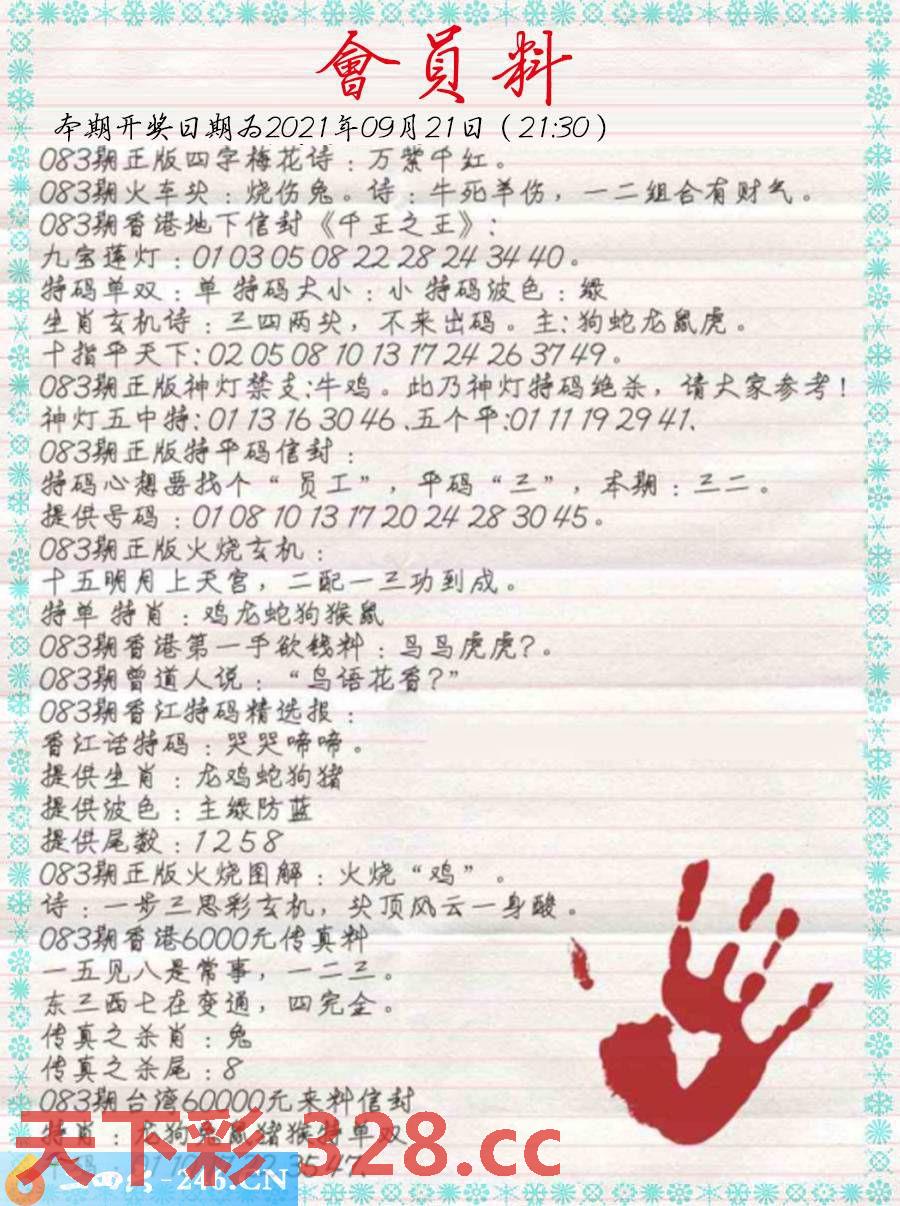 會員料
本期开奖日期为2021年09月21日（21:30）
083期正版四字梅花诗：万紫千红。
083期火车头：烧伤兔。诗：牛死羊伤，一二组合有财气。
083期香港地下信封《千王之王》：
九宝莲灯：01 03 05 08 22 28 24 34 40。
特码单双：单 特码大小：小 特码波色：绿
生肖玄机诗：三四两头，不来出码。主：狗蛇龙鼠虎。
十指平天下：02 05 08 10 13 17 24 26 37 49。
083期正版神灯禁支：牛鸡。此乃神灯特码绝杀，请大家参考！
神灯五中特：01 13 16 30 46 、五个平：01 11 19 29 41、
083期正版特平码信封：
特码心想要找个“员工”，平码“三”，本期：三二。
提供号码：01 08 10 13 17 20 24 28 30 45。
083期正版火烧玄机：
十五明月上天宫，二配一三功到成。
特单 特肖：鸡龙蛇狗猴鼠
083期香港第一手欲钱料：马马虎虎？。
083期曾道人说：“鸟语花香？”
083期香江特码精选报：
香江话特码：哭哭啼啼。
提供生肖：龙鸡蛇狗猪
提供波色：主绿防蓝
提供尾数：1 2 5 8
083期正版火烧图解：火烧“鸡”。
诗：一步三思彩玄机，头顶风云一身酸。
083期香港6000元传真料
一五见八是常事，一二三。
东三西七在变通，四完金。
传真之杀肖：兔
传真之杀尾：8
083期台湾60000元来料信封
特肖：龙狗兔鼠猪猴特单双
35 47.
天下彩 328.cc
-246.CN